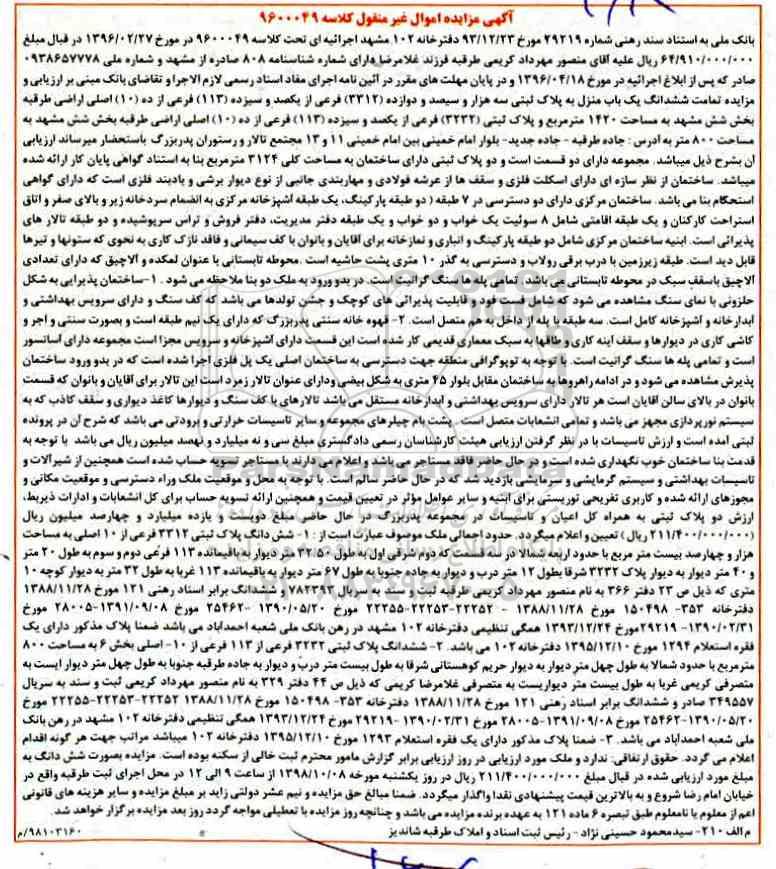 آگهی مزایده اموال غیر منقول کلاسه ۹۶۰۰۰۴۹
بانک ملی به استناد سند رهنی شماره ۲۹۲۱۹ مورخ ۹۳/۱۲/۲۳ دفترخانه ۱۰۲ مشهد اجرائیه ای تحت کلاسه ۹۶۰۰۰۴۹ در مورخ ۱۳۹۶/۰۲/۲۷ در قبال مبلغ
۶۴/۹۱۰/۰۰۰/۰۰۰ ریال علیه آقای منصور مهرداد کریمی طرقبه فرزند غلامرضا دارای شماره شناسنامه ۸۰۸ صادره از مشهد و شماره ملی ۰۹۳۸۶۵۷۷۷۸
صادر که پس از ابلاغ اجرائیه در مورخ ۱۳۹۶/۰۴/۱۸ و در پایان مهلت های مقرر در آئین نامه اجرای مفاد اسناد رسمی لازم الاجرا و تقاضای بانک مبنی بر ارزیابی و
مزایده تمامت ششدانگ یک باب منزل به پلاک ثبتی سه هزار و سیصد و دوازده (۳۳۱۲) فرعی از یکصد و سیزده (۱۱۳) فرعی از ده (۱۰) اصلی اراضی طرقبه
بخش شش مشهد به مساحت ۱۴۲۰ مترمربع و پلاک ثبتی (۳۲۳۲) فرعی از یکصد و سیزده (۱۱۳) فرعی از ده (۱۰) اصلی اراضی طرقبه بخش شش مشهد به
مساحت ۸۰۰ متر به آدرس : جاده طرقبه - جاده جدید- بلوار امام خمینی بین امام خمینی ۱۱ و ۱۳ مجتمع تالار و رستوران پدربزرگ باستحضار میرساند ارزیابی
آن بشرح ذیل میباشد. مجموعه دارای دو قسمت است و دو پلاک ثبتی دارای ساختمان به مساحت کلی ۳۱۲۴ مترمربع بنا به استناد گواهی پایان کار ارائه شده
میباشد. ساختمان از نظر سازه ای دارای اسکلت فلزی و سقف ها از عرشه فولادی و مهاربندی جانبی از نوع دیوار برشی و بادبند فلزی است که دارای گواهی
استحکام بنا می باشد. ساختمان مرکزی دارای دو دسترسی در ۷ طبقه ( دو طبقه پارکینگ، یک طبقه آشپزخانه مرکزی به انضمام سردخانه زیر و بالای صفر و اتاق
استراحت کارکنان و یک طبقه اقامتی شامل ۸ سوئیت یک خواب و دو خواب و یک طبقه دفتر مدیریت، دفتر فروش و تراس سرپوشیده و دو طبقه تالار های
پذیرائی است. ابنیه ساختمان مرکزی شامل دو طبقه پارکینگ و انباری و نمازخانه برای آقایان و بانوان با کف سیمانی و فاقد نازک کاری به نحوی که ستونها و تیرها
قابل دید است. طبقه زیرزمین با درب برقی رولاب و دسترسی به گذر ۱۰ متری پشت حاشیه است .محوطه تابستانی با عنوان لمکده و آلاچیق که دارای تعدادی
آلاچیق باسقف سبک در محوطه تابستانی می باشد. تمامی پله ها سنگ گرانیت است. در بدو ورود به ملک دو بنا ملاحظه می شود . ۱-ساختمان پذیرایی به شکل
حلزونی با نمای سنگ مشاهده می شود که شامل فست فود و قابلیت پذیرائی های کوچک و جشن تولدها می باشد که کف سنگ و دارای سرویس بهداشتی و
آبدارخانه و آشپزخانه کامل است. سه طبقه با پله از داخل به هم متصل است. ۲- قهوه خانه سنتی پدربزرگ که دارای یک نیم طبقه است و بصورت سنتی و آجر و
کاشی کاری در دیوارها و سقف آینه کاری و طاقها به سبک معماری قدیمی کار شده است این قسمت دارای آشپزخانه و سرویس مجزا است مجموعه دارای آسانسور
است و تمامی پله ها سنگ گرانیت است. با توجه به توپوگرافی منطقه جهت دسترسی به ساختمان اصلی یک پل فلزی اجرا شده است که در بدو ورود ساختمان
پذیرش مشاهده می شود و در ادامه راهروها به ساختمان مقابل بلوار ۴۵ متری به شکل بیضی ودارای عنوان تالار زمرد است این تالار برای آقایان و بانوان که قسمت
بانوان در بالای سالن آقایان است هر تالار دارای سرویس بهداشتی و آبدارخانه مستقل می باشد تالارهای با کف سنگ و دیوارها کاغذ دیواری و سقف کاذب که به
سیستم نورپردازی مجهز می باشد و تمامی انشعابات متصل است . پشت بام چیلرهای مجموعه و سایر تاسیسات حرارتی و برودتی می باشد که شرح آن در پرونده
ثبتی آمده است و ارزش تاسیسات با در نظر گرفتن ارزیابی هیئت کارشناسان رسمی دادگستری مبلغ سی و نه میلیارد و نهصد میلیون ریال می باشد با توجه به
قدمت بنا ساختمان خوب نگهداری شده است و در حال حاضر فاقد مستاجر می باشد و اعلام می دارند با مستاجر تسویه حساب شده است همچنین از شیرآلات و
تاسیسات بهداشتی و سیستم گرمایشی و سرمایشی بازدید شد که در حال حاضر سالم است. با توجه به محل و موقعیت ملک وراء دسترسی و موقعیت مکانی و
مجوزهای ارائه شده و کاربری تفریحی توریستی برای ابنیه و سایر عوامل مؤثر در تعیین قیمت و همچنین ارائه تسویه حساب برای کل انشعابات و ادارات ذیربط،
ارزش دو پلاک ثبتی به همراه کل اعیان و تاسیسات در مجموعه پدربزرگ در حال حاضر مبلغ دویست و یازده میلیارد و چهارصد میلیون ریال
(۲۱۱/۴۰۰/۰۰۰/۰۰۰ ریال) تعیین و اعلام میگردد. حدود اجمالی ملک موصوف عبارت است از : ۱- شش دانگ پلاک ثبتی ۳۳۱۲ فرعی از ۱۰ اصلی به مساحت
هزار و چهارصد بیست متر مربع با حدود اربعه شمالا در سه قسمت که دوم شرقی اول به طول ۳۲.۵۰ متر دیوار به باقیمانده ۱۱۳ فرعی دوم و سوم به طول ۲۰ متر
و ۴۰ متر دیوار به دیوار پلاک ۳۲۳۲ شرقا بطول ۱۲ متر درب و دیوار به جاده جنوبا به طول ۶۷ متر دیوار به باقیمانده ۱۱۳ غربا به طول ۳۲ متر به دیوار کوچه ۱۰
متری که ذیل ص ۲۳ دفتر ۳۶۶ به نام منصور مهرداد کریمی طرقبه ثبت و سند به سریال ۷۸۲۳۹۷ و ششدانگ برابر اسناد رهنی ۱۲۱ مورخ ۱۳۸۸/۱۱/۲۸
دفترخانه ۳۵۳- ۱۵۰۴۹۸ مورخ ۱۳۸۸/۱۱/۲۸ - ۲۲۲۵۲-۲۲۲۵۳-۲۲۲۵۵ مورخ ۱۳۹۰/۰۵/۲۰ -۲۵۴۶۲ -۱۳۹۱/۰۹/۰۸-۲۸۰۰۵ مورخ
۱۳۹۰/۰۲/۳۱- ۲۹۲۱۹مورخ ۱۳۹۳/۱۲/۲۴ همگی تنظیمی دفترخانه ۱۰۲ مشهد در رهن بانک ملی شعبه احمدآباد می باشد ضمنا پلاک مذکور دارای یک
فقره استعلام ۱۲۹۴ مورخ ۱۳۹۵/۱۲/۱۰ دفترخانه ۱۰۲ می باشد. ۲- ششدانگ پلاک ثبتی ۳۲۳۲ فرعی از ۱۱۳ فرعی از ۱۰- اصلی بخش ۶ به مساحت ۸۰۰
مترمربع با حدود شمالا به طول چهل متر دیوار به دیوار حریم کوهستانی شرقا به طول بیست متر درب و دیوار به جاده طرقبه جنوبا به طول چهل متر دیوار ایست به
متصرفی کریمی غربا به طول بیست متر دیواریست به متصرفی غلامرضا کریمی که ذیل ص ۴۴ دفتر ۳۲۹ به نام منصور مهرداد کریمی ثبت و سند به سریال
۳۴۹۵۵۷ صادر و ششدانگ برابر اسناد رهنی ۱۲۱ مورخ ۱۳۸۸/۱۱/۲۸ دفترخانه ۳۵۳- ۱۵۰۴۹۸ مورخ ۱۳۸۸/۱۱/۲۸ ۲۲۲۵۲-۲۲۲۵۳-۲۲۲۵۵ مورخ
۱۳۹۰/۰۵/۲۰-۲۵۴۶۲ -۱۳۹۱/۰۹/۰۸-۲۸۰۰۵ مورخ ۱۳۹۰/۰۲/۳۱ -۲۹۲۱۹ مورخ ۱۳۹۳/۱۲/۲۴ همگی تنظیمی دفترخانه ۱۰۲ مشهد در رهن بانک
ملی شعبه احمدآباد می باشد. ۳- ضمنا پلاک مذکور دارای یک فقره استعلام ۱۲۹۳ مورخ ۱۳۹۵/۱۲/۱۰ دفترخانه ۱۰۲ میباشد مراتب جهت هر گونه اقدام
اعلام می گردد. حقوق ارتفاقی: ندارد و ملک مورد ارزیابی در روز ارزیابی برابر گزارش مامور محترم ثبت خالی از سکنه بوده است. مزایده بصورت شش دانگ به
مبلغ مورد ارزیابی شده در قبال مبلغ ۲۱۱/۴۰۰/۰۰۰/۰۰۰ ریال در روز یکشنبه مورخه ۱۳۹۸/۱۰/۰۸ از ساعت ۹ الی ۱۲ در محل اجرای ثبت طرقبه واقع در
خیابان امام رضا شروع و به بالاترین قیمت پیشنهادی نقدا واگذار میگردد. ضمنا مبالغ حق مزایده و نیم عشر دولتی زاید بر مبلغ مزایده و سایر هزینه های قانونی
اعم از معلوم یا نامعلوم طبق تبصره ۶ ماده ۱۲۱ به عهده برنده مزایده می باشد و چنانچه روز مزایده با تعطیلی مواجه گردد روز بعد مزایده برگزار خواهد شد.
م الف ۲۱۰- سیدمحمود حسینی نژاد - رئیس ثبت اسناد و املاک طرقبه شاندیز
۹۸۱۰۳۱۶۰/م